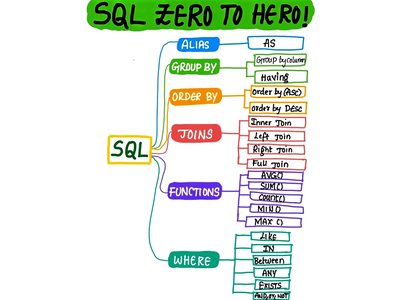 SQL ZERO TO HERO!
SQL
ALIAS
AS
GROUP BY
GROUP by column
Having
ORDER BY
Order by (ASC)
order by DESC
JOINS
Inner Join
Left Join
Right Join
Full Join
FUNCTIONS
AVG()
SUM()
COUNT()
MIN()
MAX ()
WHERE
LIKE
IN
Between
ANY
EXISTS
AND, OR, NOT